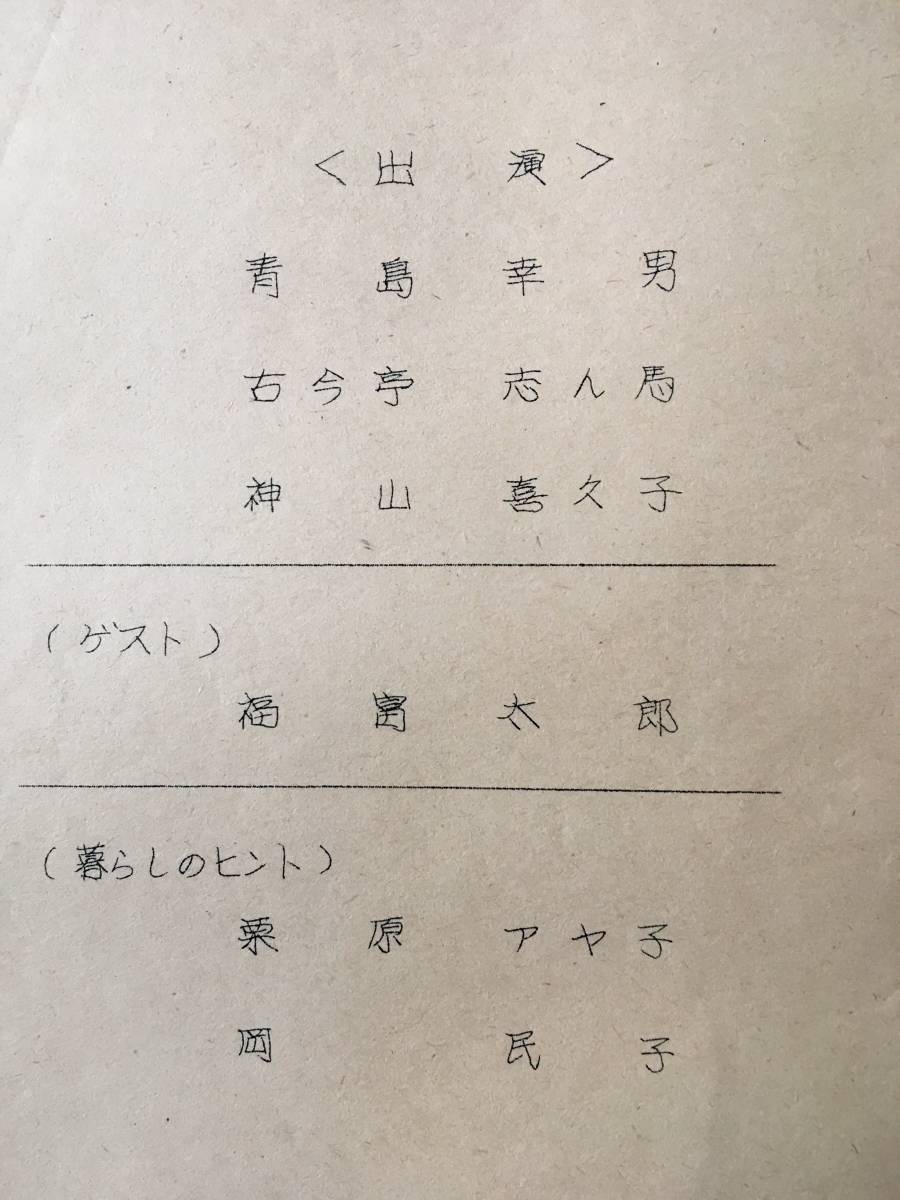 ＜出 演＞
青島幸男
古今亭 志ん馬
神山 喜久子
(ゲスト)
福富太郎
(暮らしのヒント)
栗原 アヤ子
岡 民子